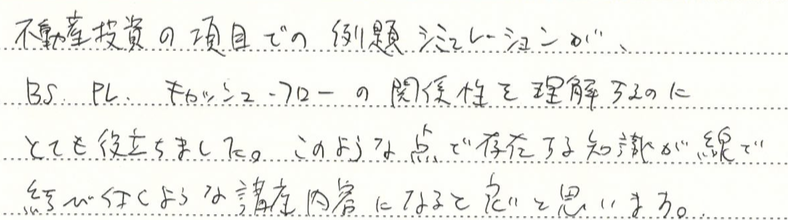 不動産投資の項目での例題シミュレーションが、
BS. PL. キャッシュ・フローの関係性を理解するのに
とても役立ちました。このような点で存在する知識が線で
結び付くような講座内容になると良いと思います。